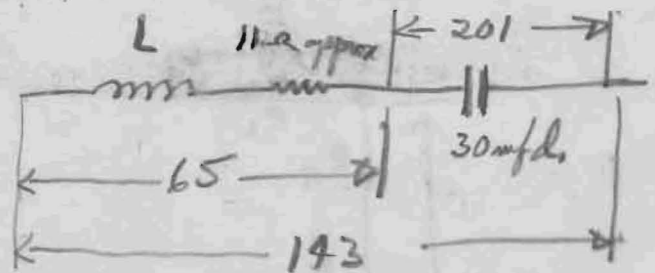 L 11Ω approx 201
30 mfds
65
143